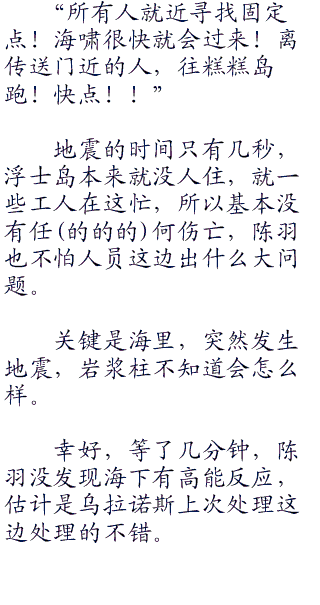 “所有人就近寻找固定
点！海啸很快就会过来！离
传送门近的人，往糕糕岛
跑！快点！！”
地震的时间只有几秒，
浮士岛本来就没人住，就一
些工人在这忙，所以基本没
有任(的的的)何伤亡，陈羽
也不怕人员这边出什么大问
题。
关键是海里，突然发生
地震，岩浆柱不知道会怎么
样。
幸好，等了几分钟，陈
羽没发现海下有高能反应，
估计是乌拉诺斯上次处理这
边处理的不错。